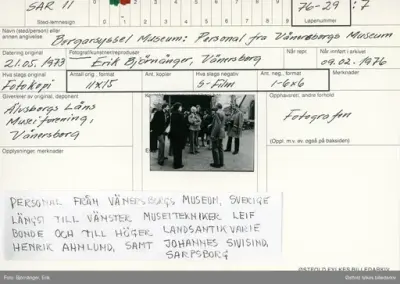 SAR 11
76-29 : 7
Sted-/emne/sign.
Løpenummer
Navn (sted/person) eller
emnen angivelse
Borgarsyssel Museum: Personal fra Vänersborgs Museum
Datering original
Fotograf/kunstner/reprodusent
Når repr.
Når innført i arkivet
21.05.1973
Erik Björnånger, Vänersborg
09.02.1976
Hva slags original
Antall orig., format
Ant. kopier
Hva slags negativ
Ant. neg., format
Merknader
Fotokopi
11X15
S-Film
1-6x6
Giver/eier av original, deponent
Opphavsrett, andre forhold
Älvsborgs Läns
Museiförening,
Vänersborg
Fotografen
(Oppl. m.v. m. også på baksiden)
Opplysninger, merknader
PERSONAL FRÅN VÄNERSBORGS MUSEUM, SVERIGE
LÄNGST TILL VÄNSTER MUSEITEKNIKER LEIF
BONDE OCH TILL HÖGER LANDSANTIKVARIE
HENRIK AHNLUND, SAMT JOHANNES SIVISIND,
SARPSBORG
ØSTFOLD FYLKES BILLEDARKIV
Foto: Björnånger, Erik
Østfold fylkes billedarkiv